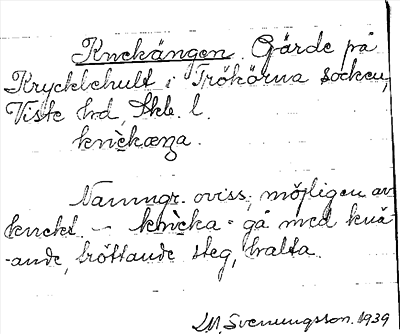 Knekängen. Gärde på
Krycklehult i Trökörna socken,
Viste hd, Skb. l.
knèkæŋa.
Namngr. oviss, möjligen av
knekt. – knècka = gå med knä-
-ande, tröttande steg, halta.
M. Svenungsson. 1939